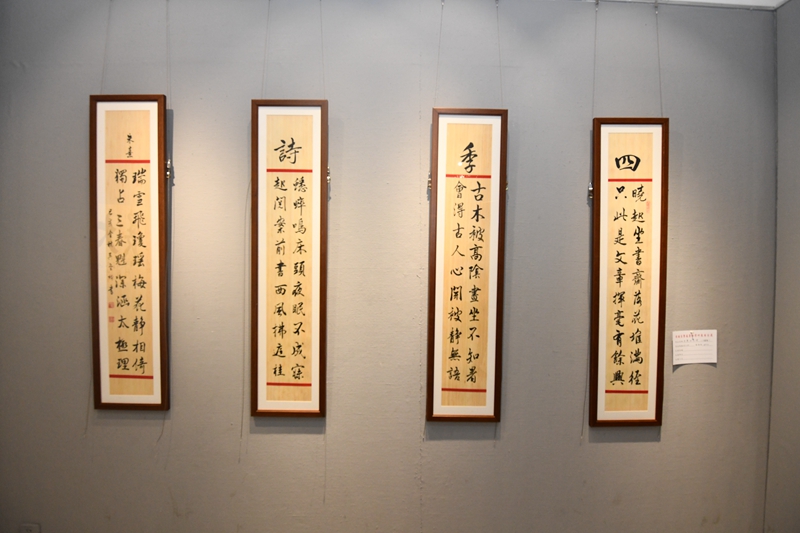 四
曉起坐書齋落花堆滿徑
只此是文章揮毫有餘興
季
古木被高陰晝坐不知暑
會得古人心開襟靜無語
詩
蟋蟀鳴床頭夜眠不成寐
起閱案前書西風拂庭桂
朱熹
瑞雪飛瓊瑤梅花靜相倚
獨占三春魁深涵太極理